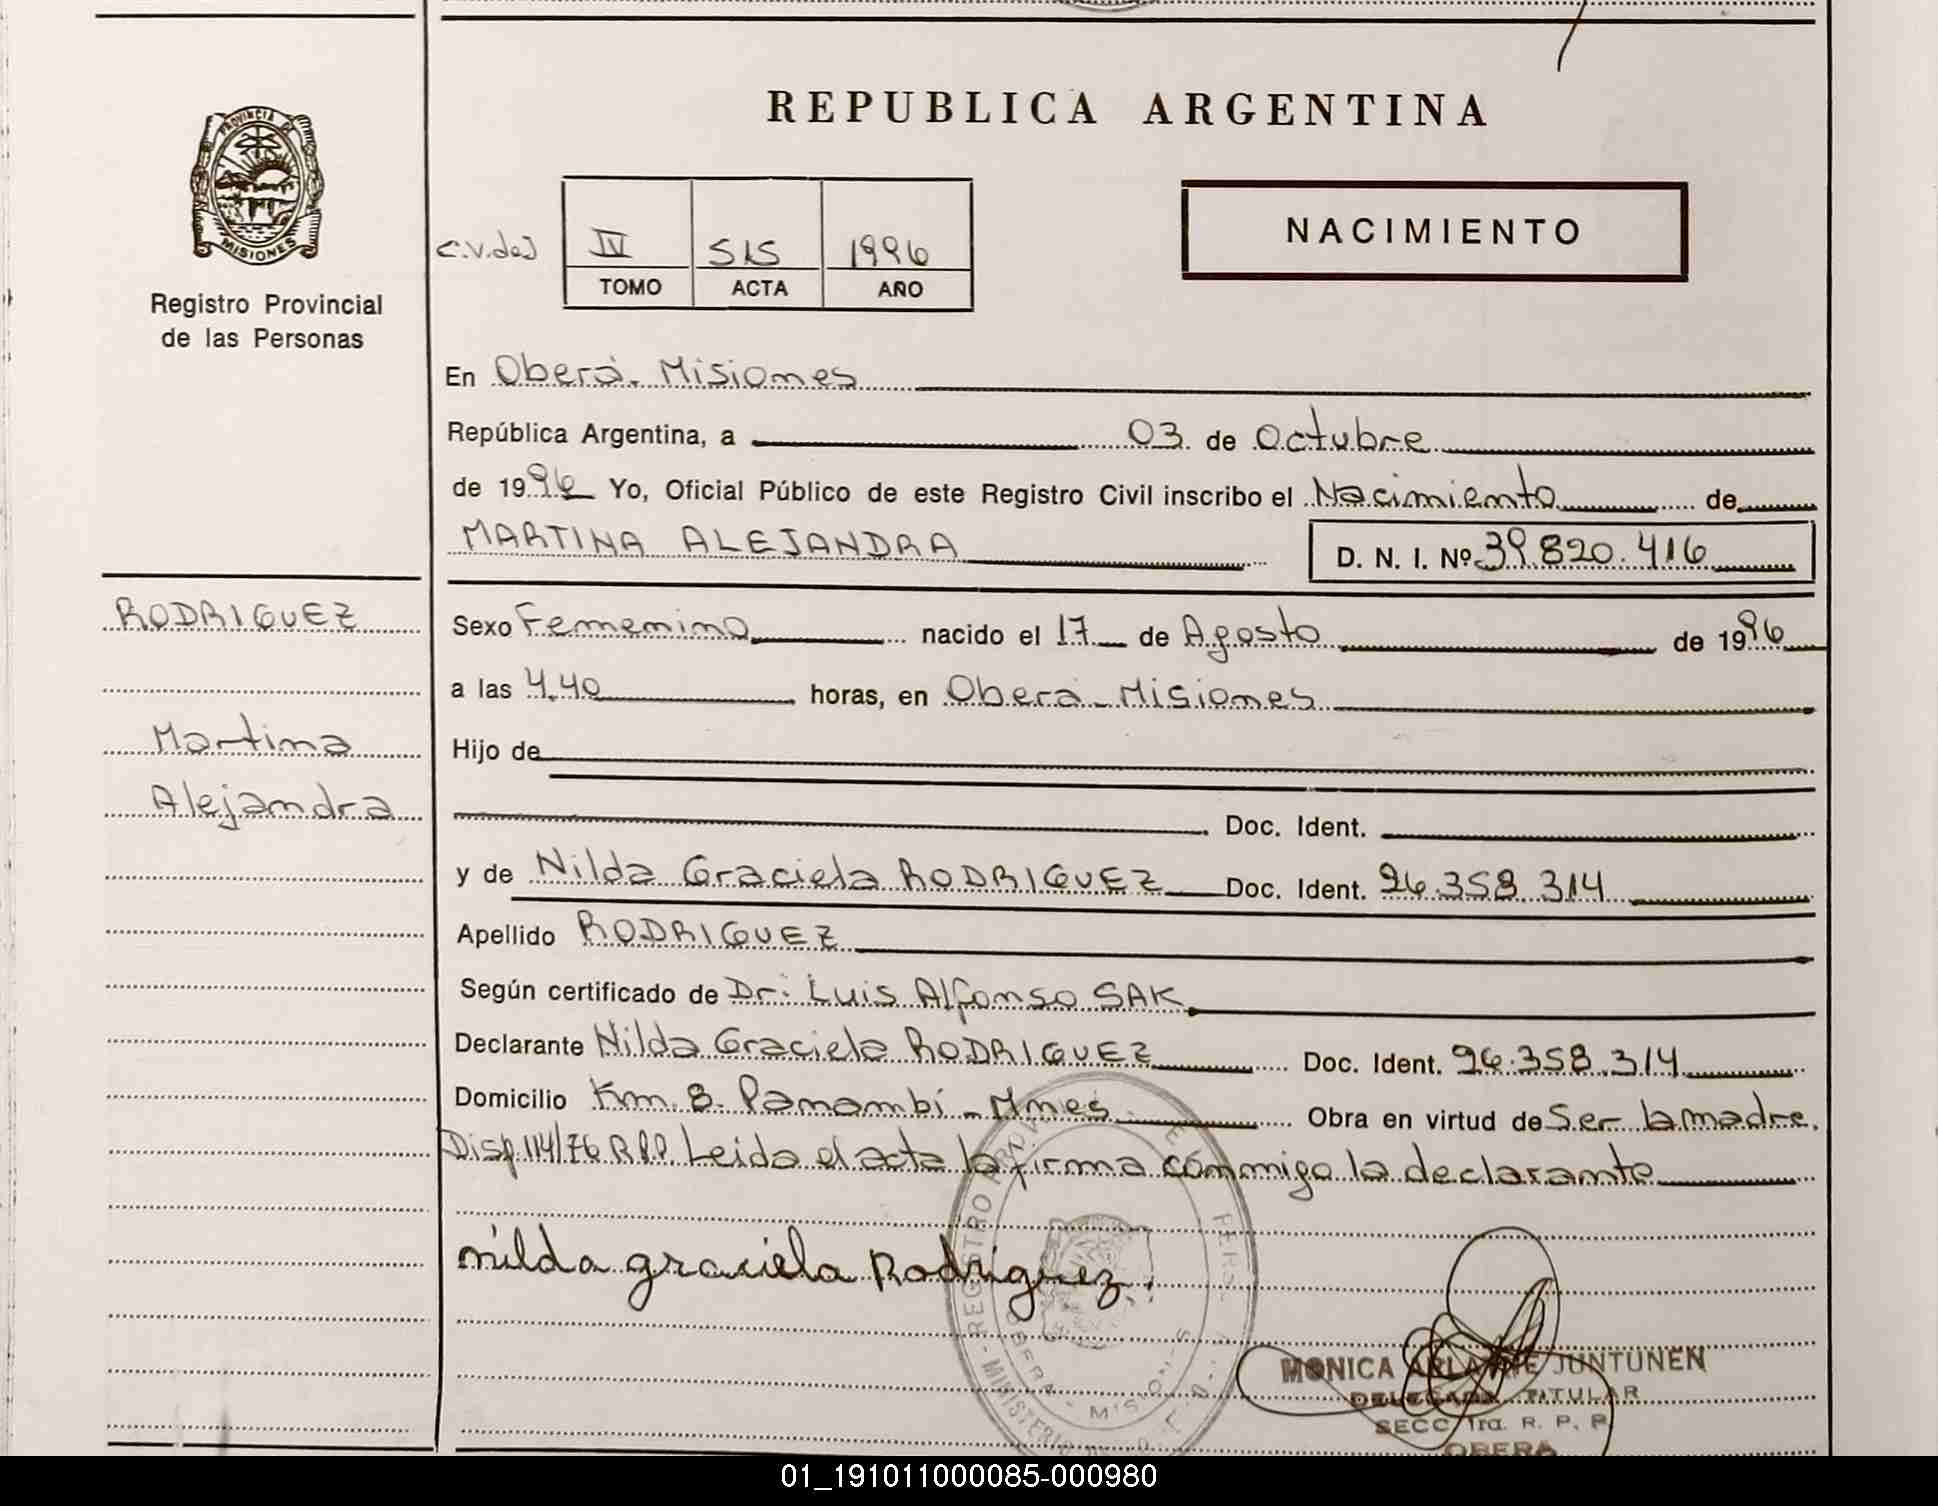 REPUBLICA ARGENTINA
PROVINCIA DE
MISIONES
Registro Provincial
de las Personas
NACIMIENTO
IV 515 1996
TOMO ACTA AÑO
En Oberá. Misiones
República Argentina, a 03 de Octubre
de 1996 Yo, Oficial Público de este Registro Civil inscribo el Nacimiento de
MARTINA ALEJANDRA D. N. I. Nº 39.820.416
RODRIGUEZ
Martina
Alejandra
Sexo Femenino nacido el 17 de Agosto de 1996
a las 4.40 horas, en Oberá - Misiones
Hijo de
Doc. Ident.
y de Nilda Graciela RODRIGUEZ Doc. Ident. 26.358.314
Apellido RODRIGUEZ
Según certificado de Dr: Luis Alfonso SAK
Declarante Nilda Graciela RODRIGUEZ Doc. Ident. 26.358.314
Domicilio Km. 8. Panambí - Mnes Obra en virtud de Ser la madre.
Disp 114/76 R.P.P Leida el acta la firma conmigo la declarante
nilda graciela Rodriguez.
MONICA JUNTUNEN
DELEGADA TITULAR
SECC. 1ra. R. P. P
OBERA
01_191011000085-000980